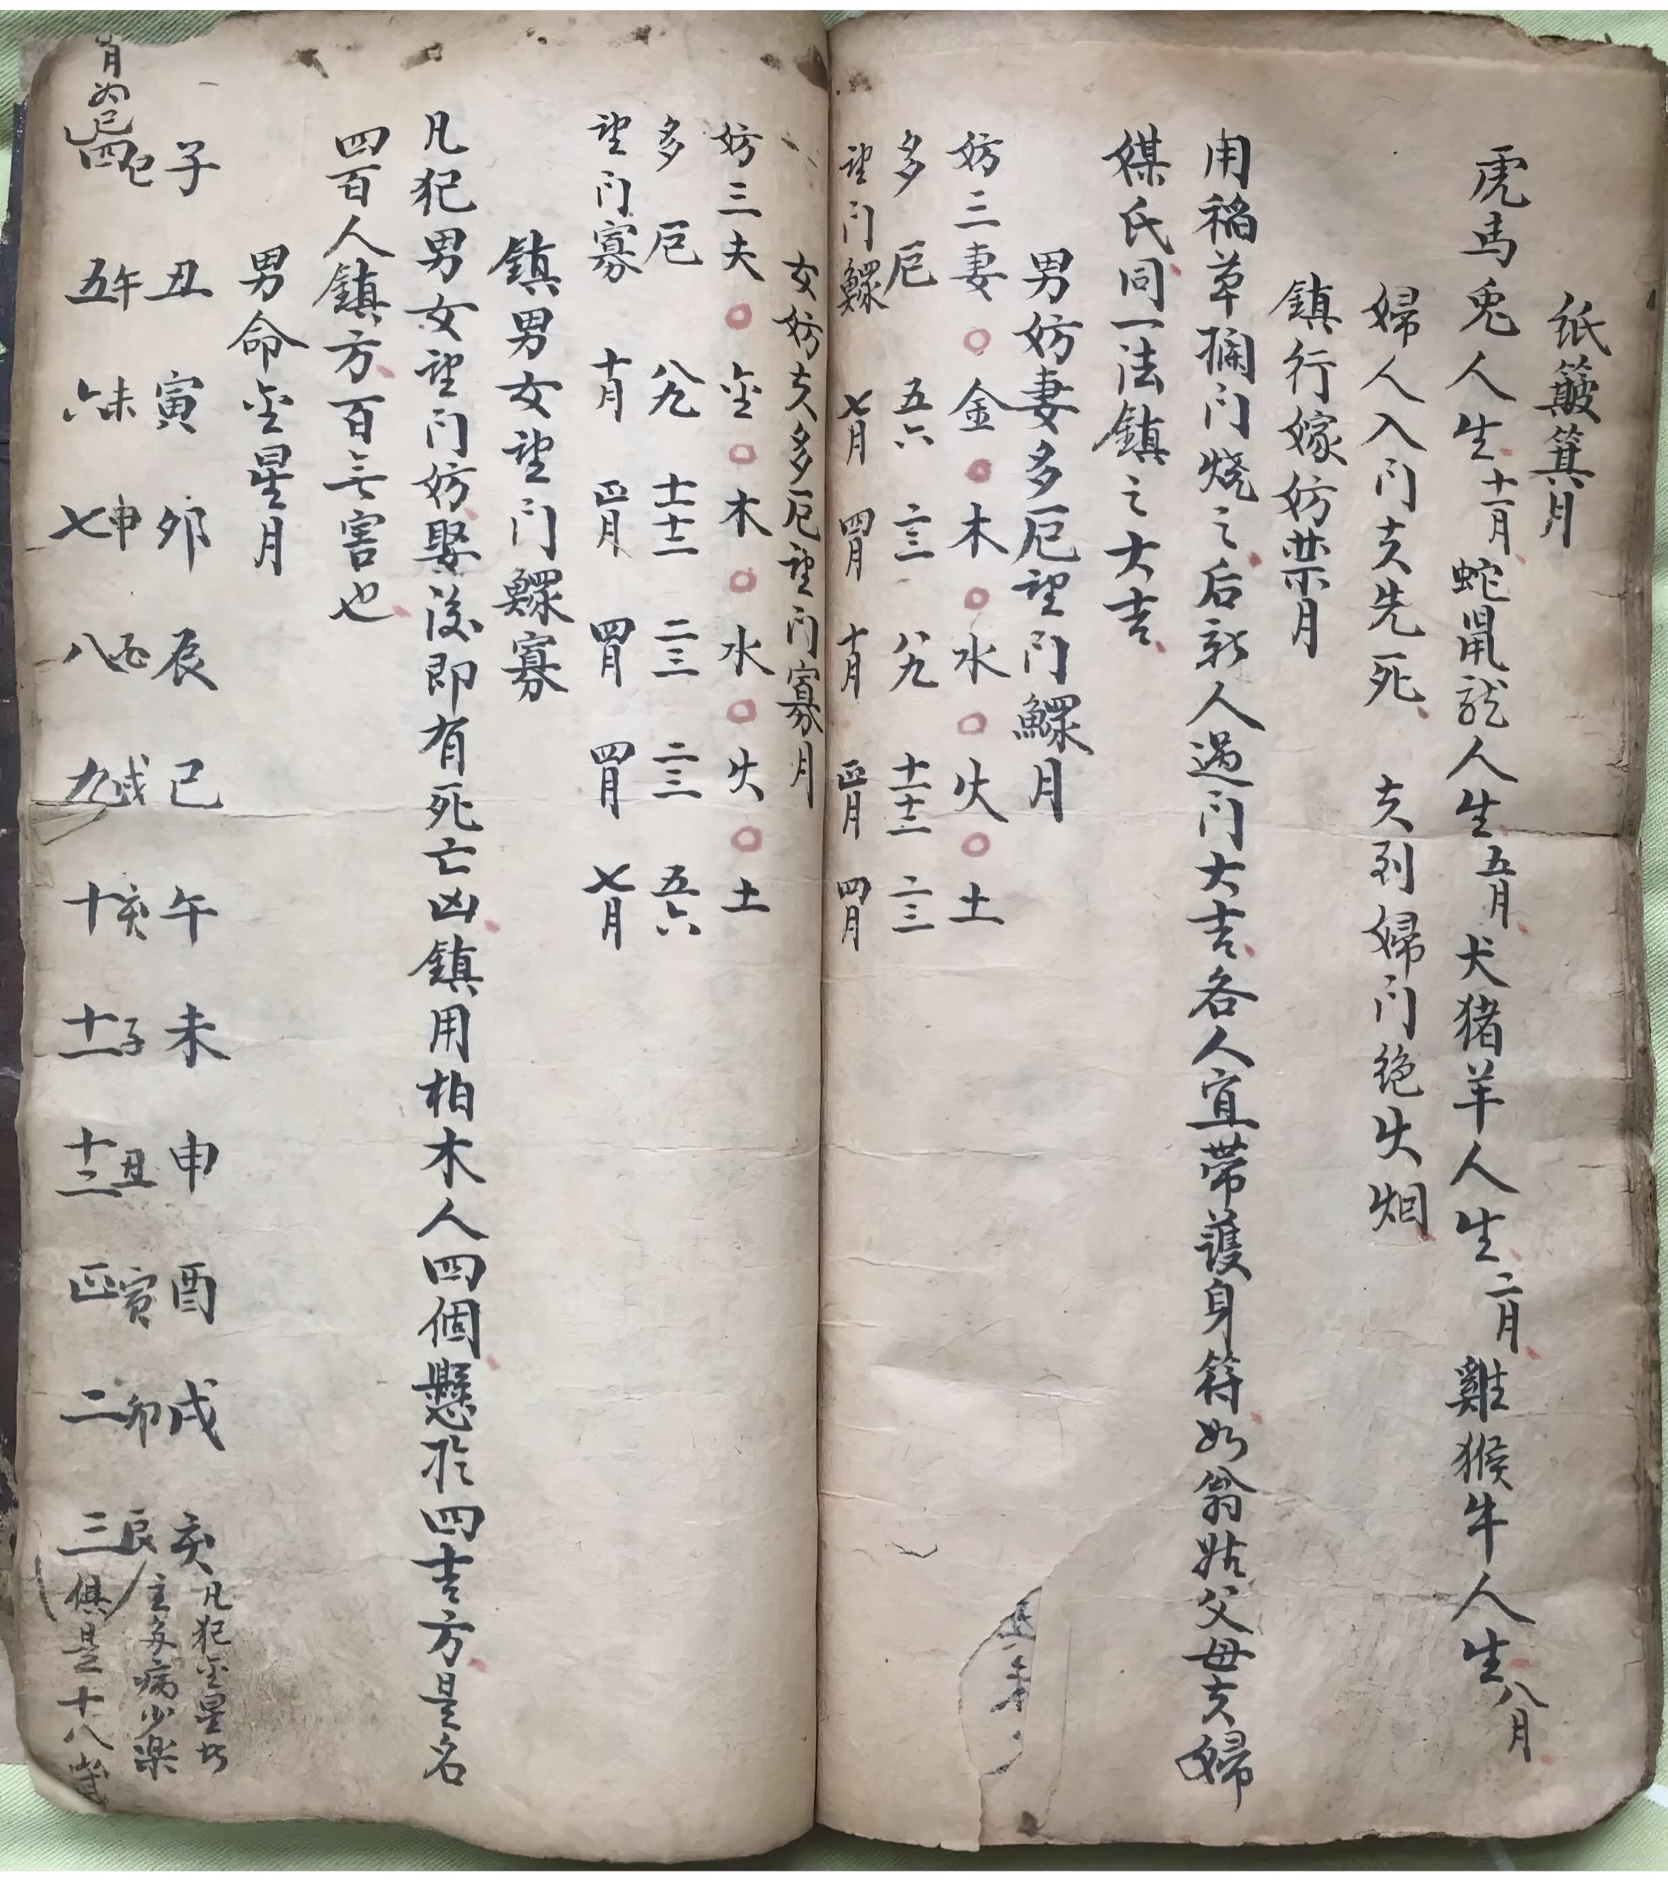 纸簸箕月
虎馬兎人生十一月蛇鼠龙人生五月犬猪羊人生二月雞猴牛人生八月
婦人入门夫先死 夫到婦门绝火烟
鎮行嫁妨禁月
用稻草攔门烧之后新人過门大吉各人宜带護身符如翁姑父母夫婦
媒氏同一法鎮之大吉
男妨妻多厄望门鰥月
妨三妻○金○木○水○火○土
多厄 五六 二三 八九 十一十二 二三
望门鰥 七月 四月 十月 正月 四月
女妨夫多厄望门寡月
妨三夫○金○木○水○火○土
多厄 八九 十一十二 二三 二三 五六
望门寡 十月 正月 四月 四月 七月
鎮男女望门鰥寡
凡犯男女望门妨娶後即有死亡凶鎮用柏木人四個懸於四吉方是名
四百人鎮方百无害也
男命金星月
子 丑 寅 卯 辰 巳 午 未 申 酉 戌 亥 凡犯金星
巳 午 未 申 酉 戌 亥 子 丑 寅 卯 辰 主多病少楽
四 五 六 七 八 九 十 十一 十二 正 二 三 俱是十八
月 巳